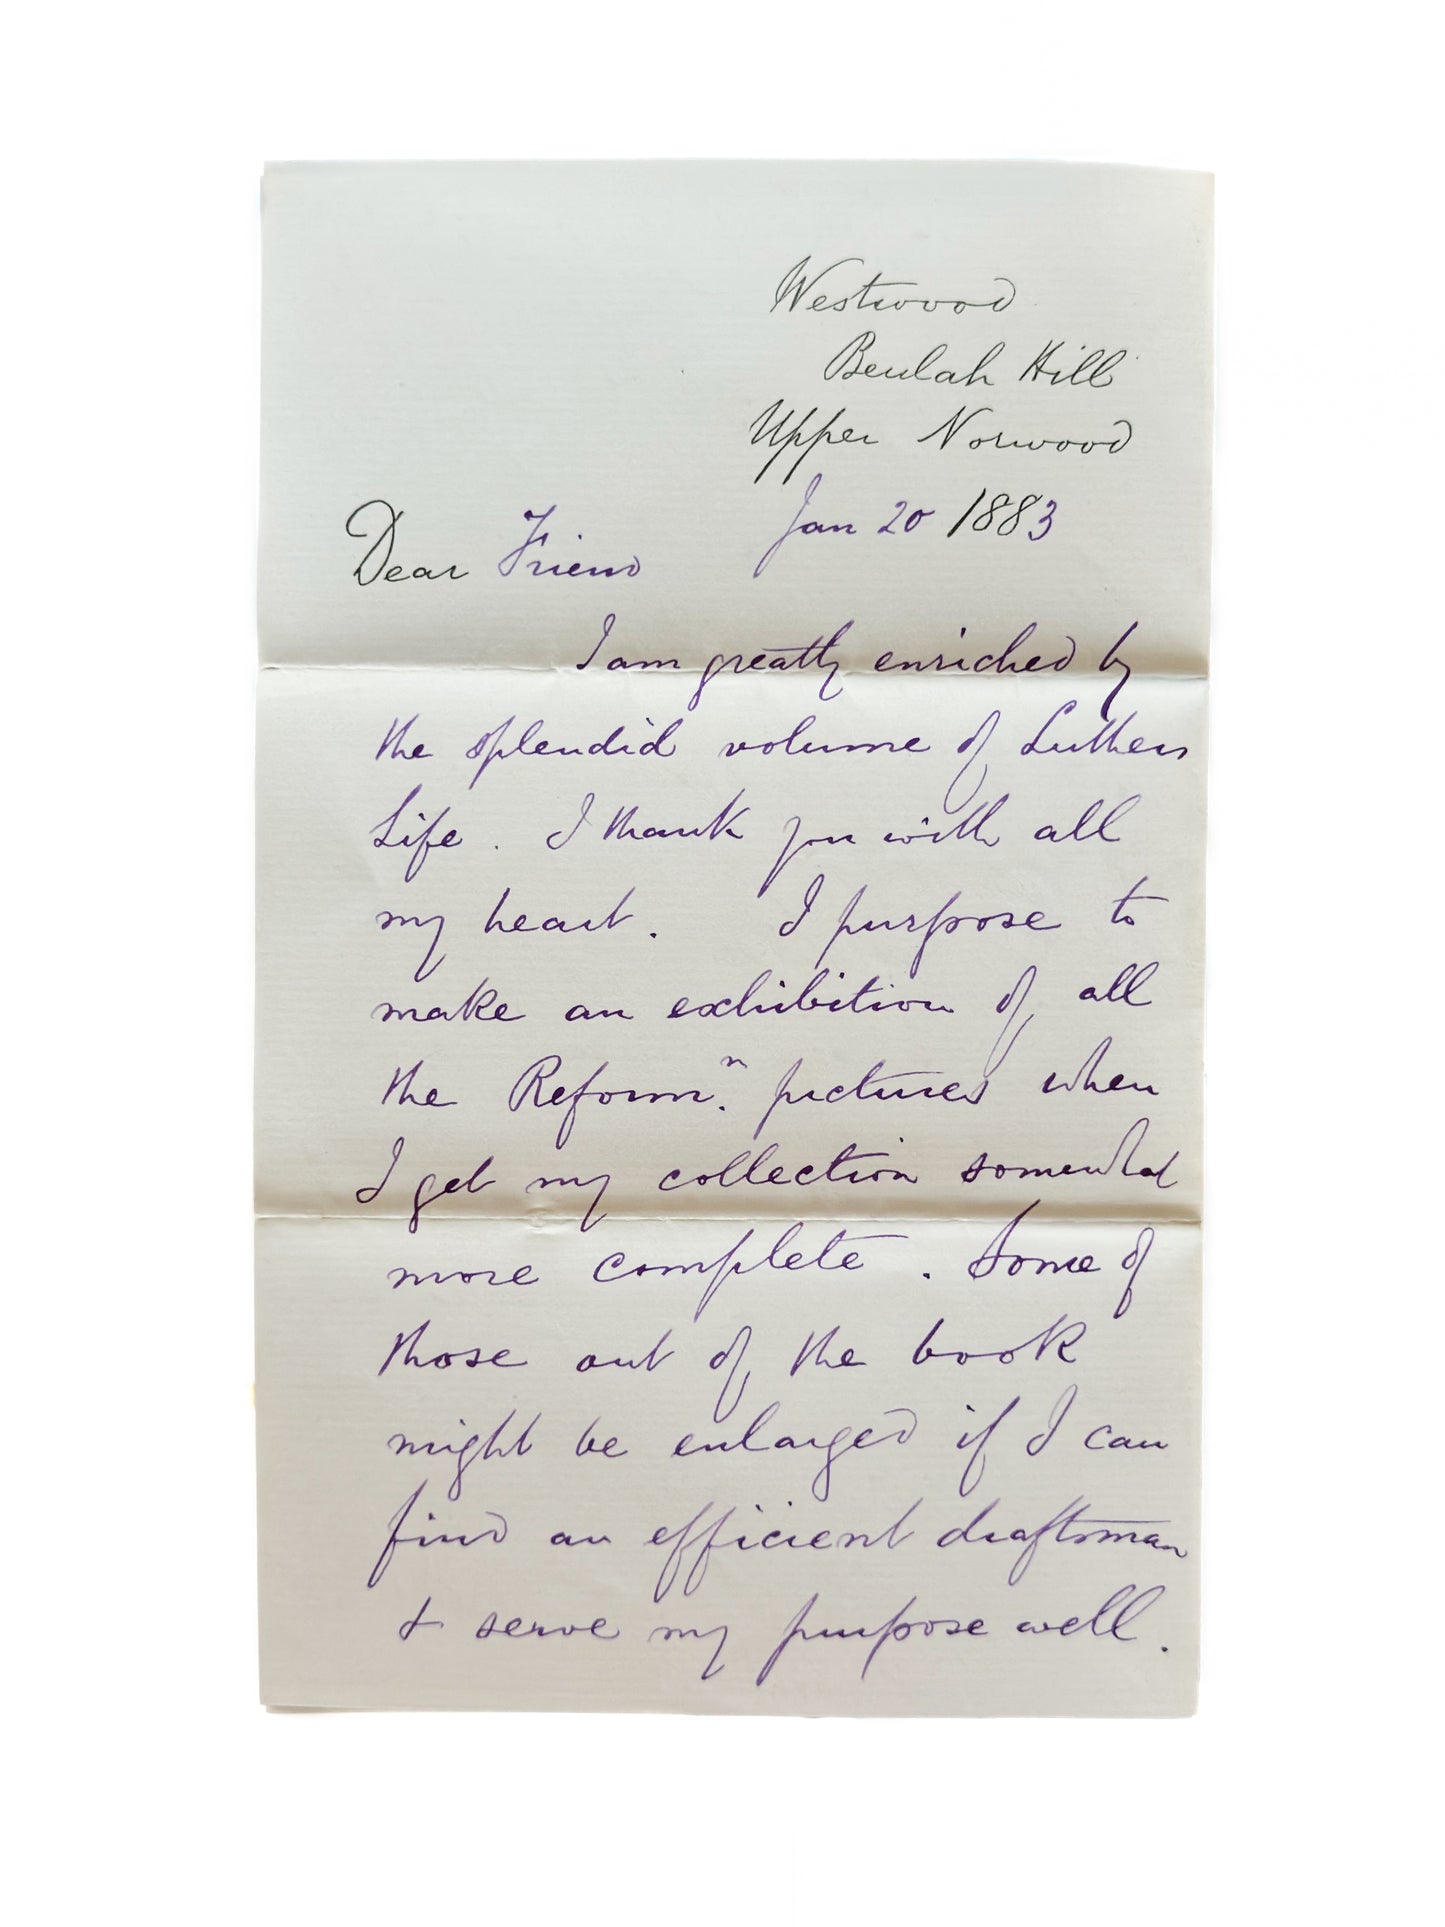 Westwood
Beulah Hill
Upper Norwood
Jan 20 1883
Dear Friend
I am greatly enriched by
the splendid volume of Luthers
Life. I thank you with all
my heart. I purpose to
make an exhibition of all
the Reform.ⁿ pictures when
I get my collection somewhat
more complete. Some of
those out of the book
might be enlarged if I can
find an efficient draftsman
& serve my purpose well.